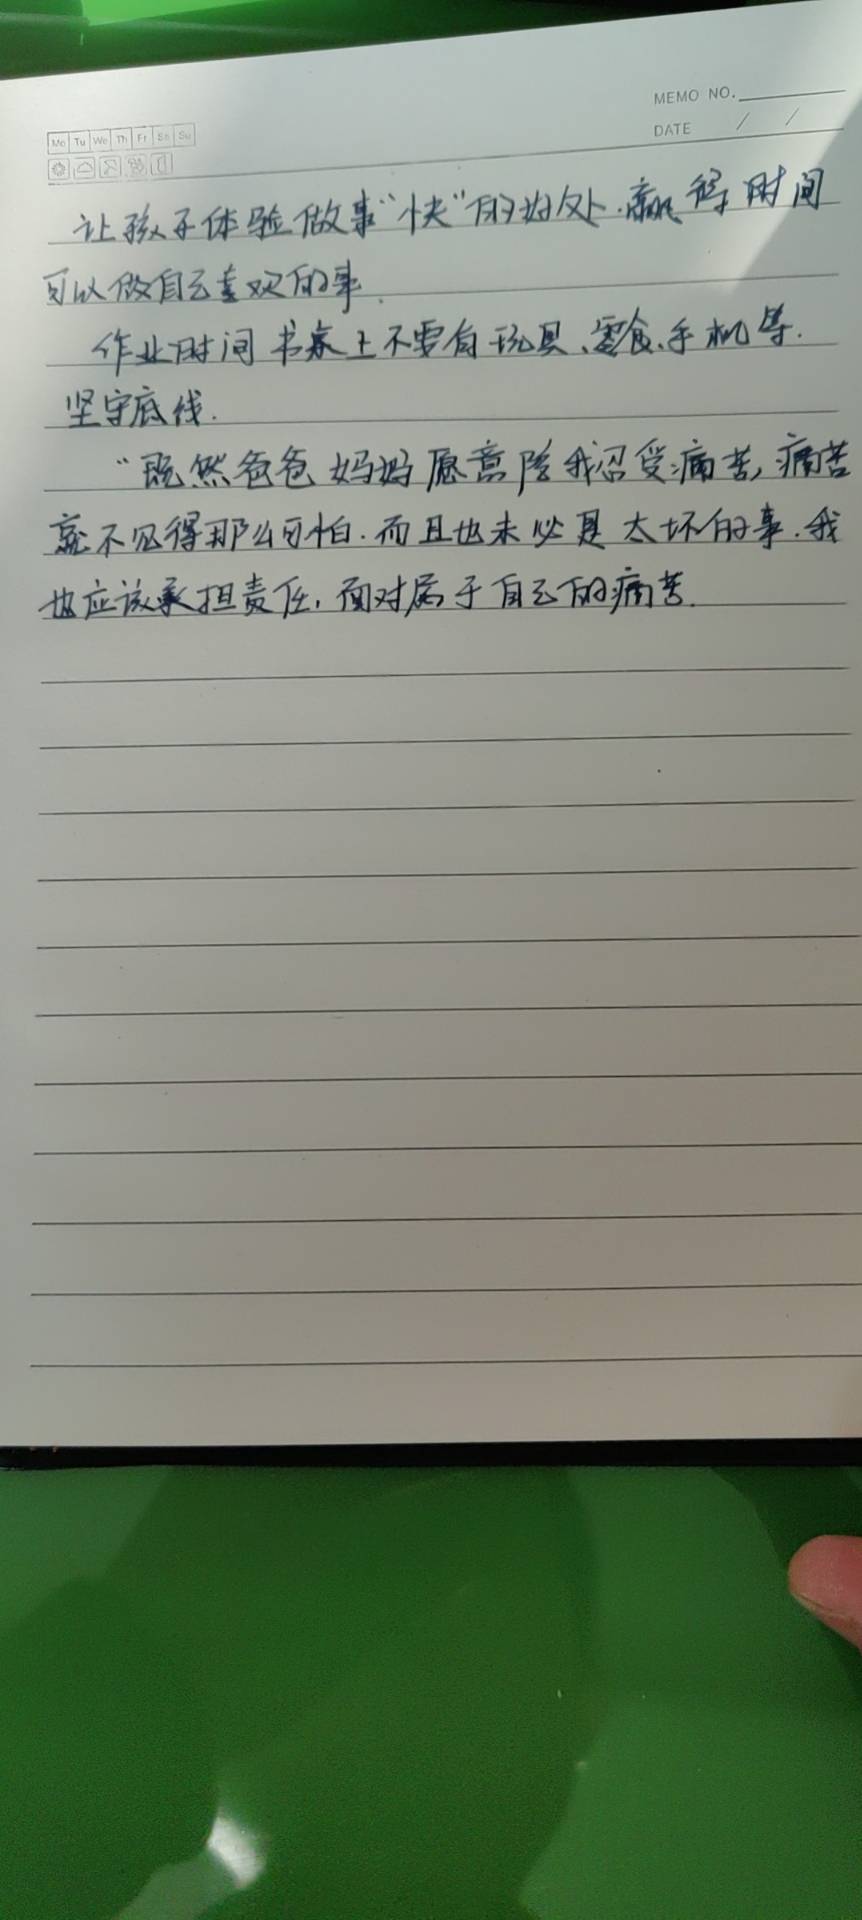 MEMO NO.
Mo Tu We Th Fr Sa Su
DATE / /
让孩子体验做事“快”的好处.赢得时间
可以做自己喜欢的事.
作业时间书桌上不要有玩具、零食、手机等.
坚守底线.
“既然爸爸妈妈愿意陪我忍受痛苦,痛苦
就不见得那么可怕.而且也未必是太坏的事.我
也应该承担责任,面对属于自己的痛苦.